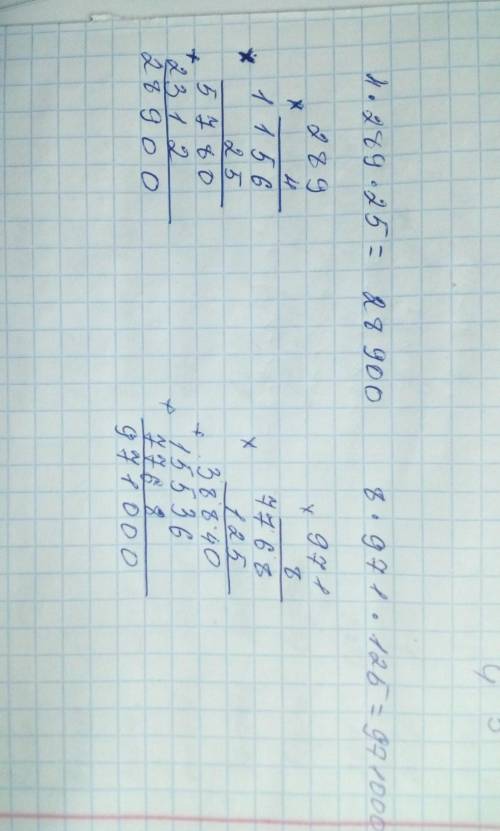 4 · 289 · 25 = 28900
× 289
4
× 1156
25
+ 5780
2312
28900
8 · 971 · 125 = 971000
× 971
8
× 7768
125
+ 38840
+ 15536
7768
971000